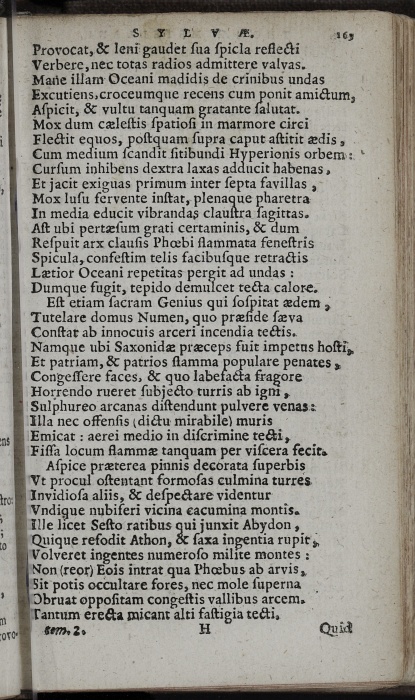 SYLVÆ. 169
Provocat, & leni gaudet ſua ſpicla reflecti
Verbere, nec totas radios admittere valvas.
Mane illam Oceani madidis de crinibus undas
Excutiens, croceumque recens cum ponit amictum,
Aſpicit, & vultu tanquam gratante ſalutat.
Mox dum cæleſtis ſpatioſi in marmore circi
Flectit equos, poſtquam ſupra caput aſtitit ædis,
Cum medium ſcandit ſitibundi Hyperionis orbem:
Curſum inhibens dextra laxas adducit habenas,
Et jacit exiguas primum inter ſepta favillas,
Mox luſu fervente inſtat, plenaque pharetra
In media educit vibrandas clauſtra ſagittas.
Aſt ubi pertæſum grati certaminis, & dum
Reſpuit arx clauſis Phœbi flammata feneſtris
Spicula, confeſtim telis facibuſque retractis
Lætior Oceani repetitas pergit ad undas:
Dumque fugit, tepido demulcet tecta calore.
Eſt etiam ſacram Genius qui ſoſpitat ædem,
Tutelare domus Numen, quo præſide ſæva
Conſtat ab innocuis arceri incendia tectis.
Namque ubi Saxonidæ præceps fuit impetus hoſti,
Et patriam, & patrios flamma populare penates,
Congeſſere faces, & quo labefacta fragore
Horrendo rueret ſubjecto turris ab igni,
Sulphureo arcanas diſtendunt pulvere venas:
Illa nec offenſis (dictu mirabile) muris
Emicat: aerei medio in diſcrimine tecti,
Fiſſa locum flammæ tanquam per viſcera fecit.
Aſpice præterea pinnis decorata ſuperbis
Vt procul oſtentant formoſas culmina turres
Invidioſa aliis, & deſpectare videntur
Vndique nubiferi vicina cacumina montis.
Ille licet Seſto ratibus qui junxit Abydon,
Quique refodit Athon, & ſaxa ingentia rupit,
Volveret ingentes numeroſo milite montes:
Non (reor) Eois intrat qua Phœbus ab arvis,
Sit potis occultare fores, nec mole ſuperna
Obruat oppoſitam congeſtis vallibus arcem.
Tantum erecta micant alti faſtigia tecti.
tom. 2. H Quid